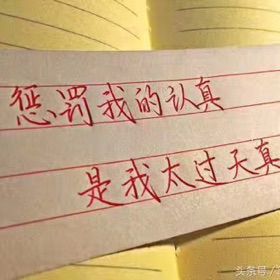 惩罚我的认真
是我太过天真
头条号